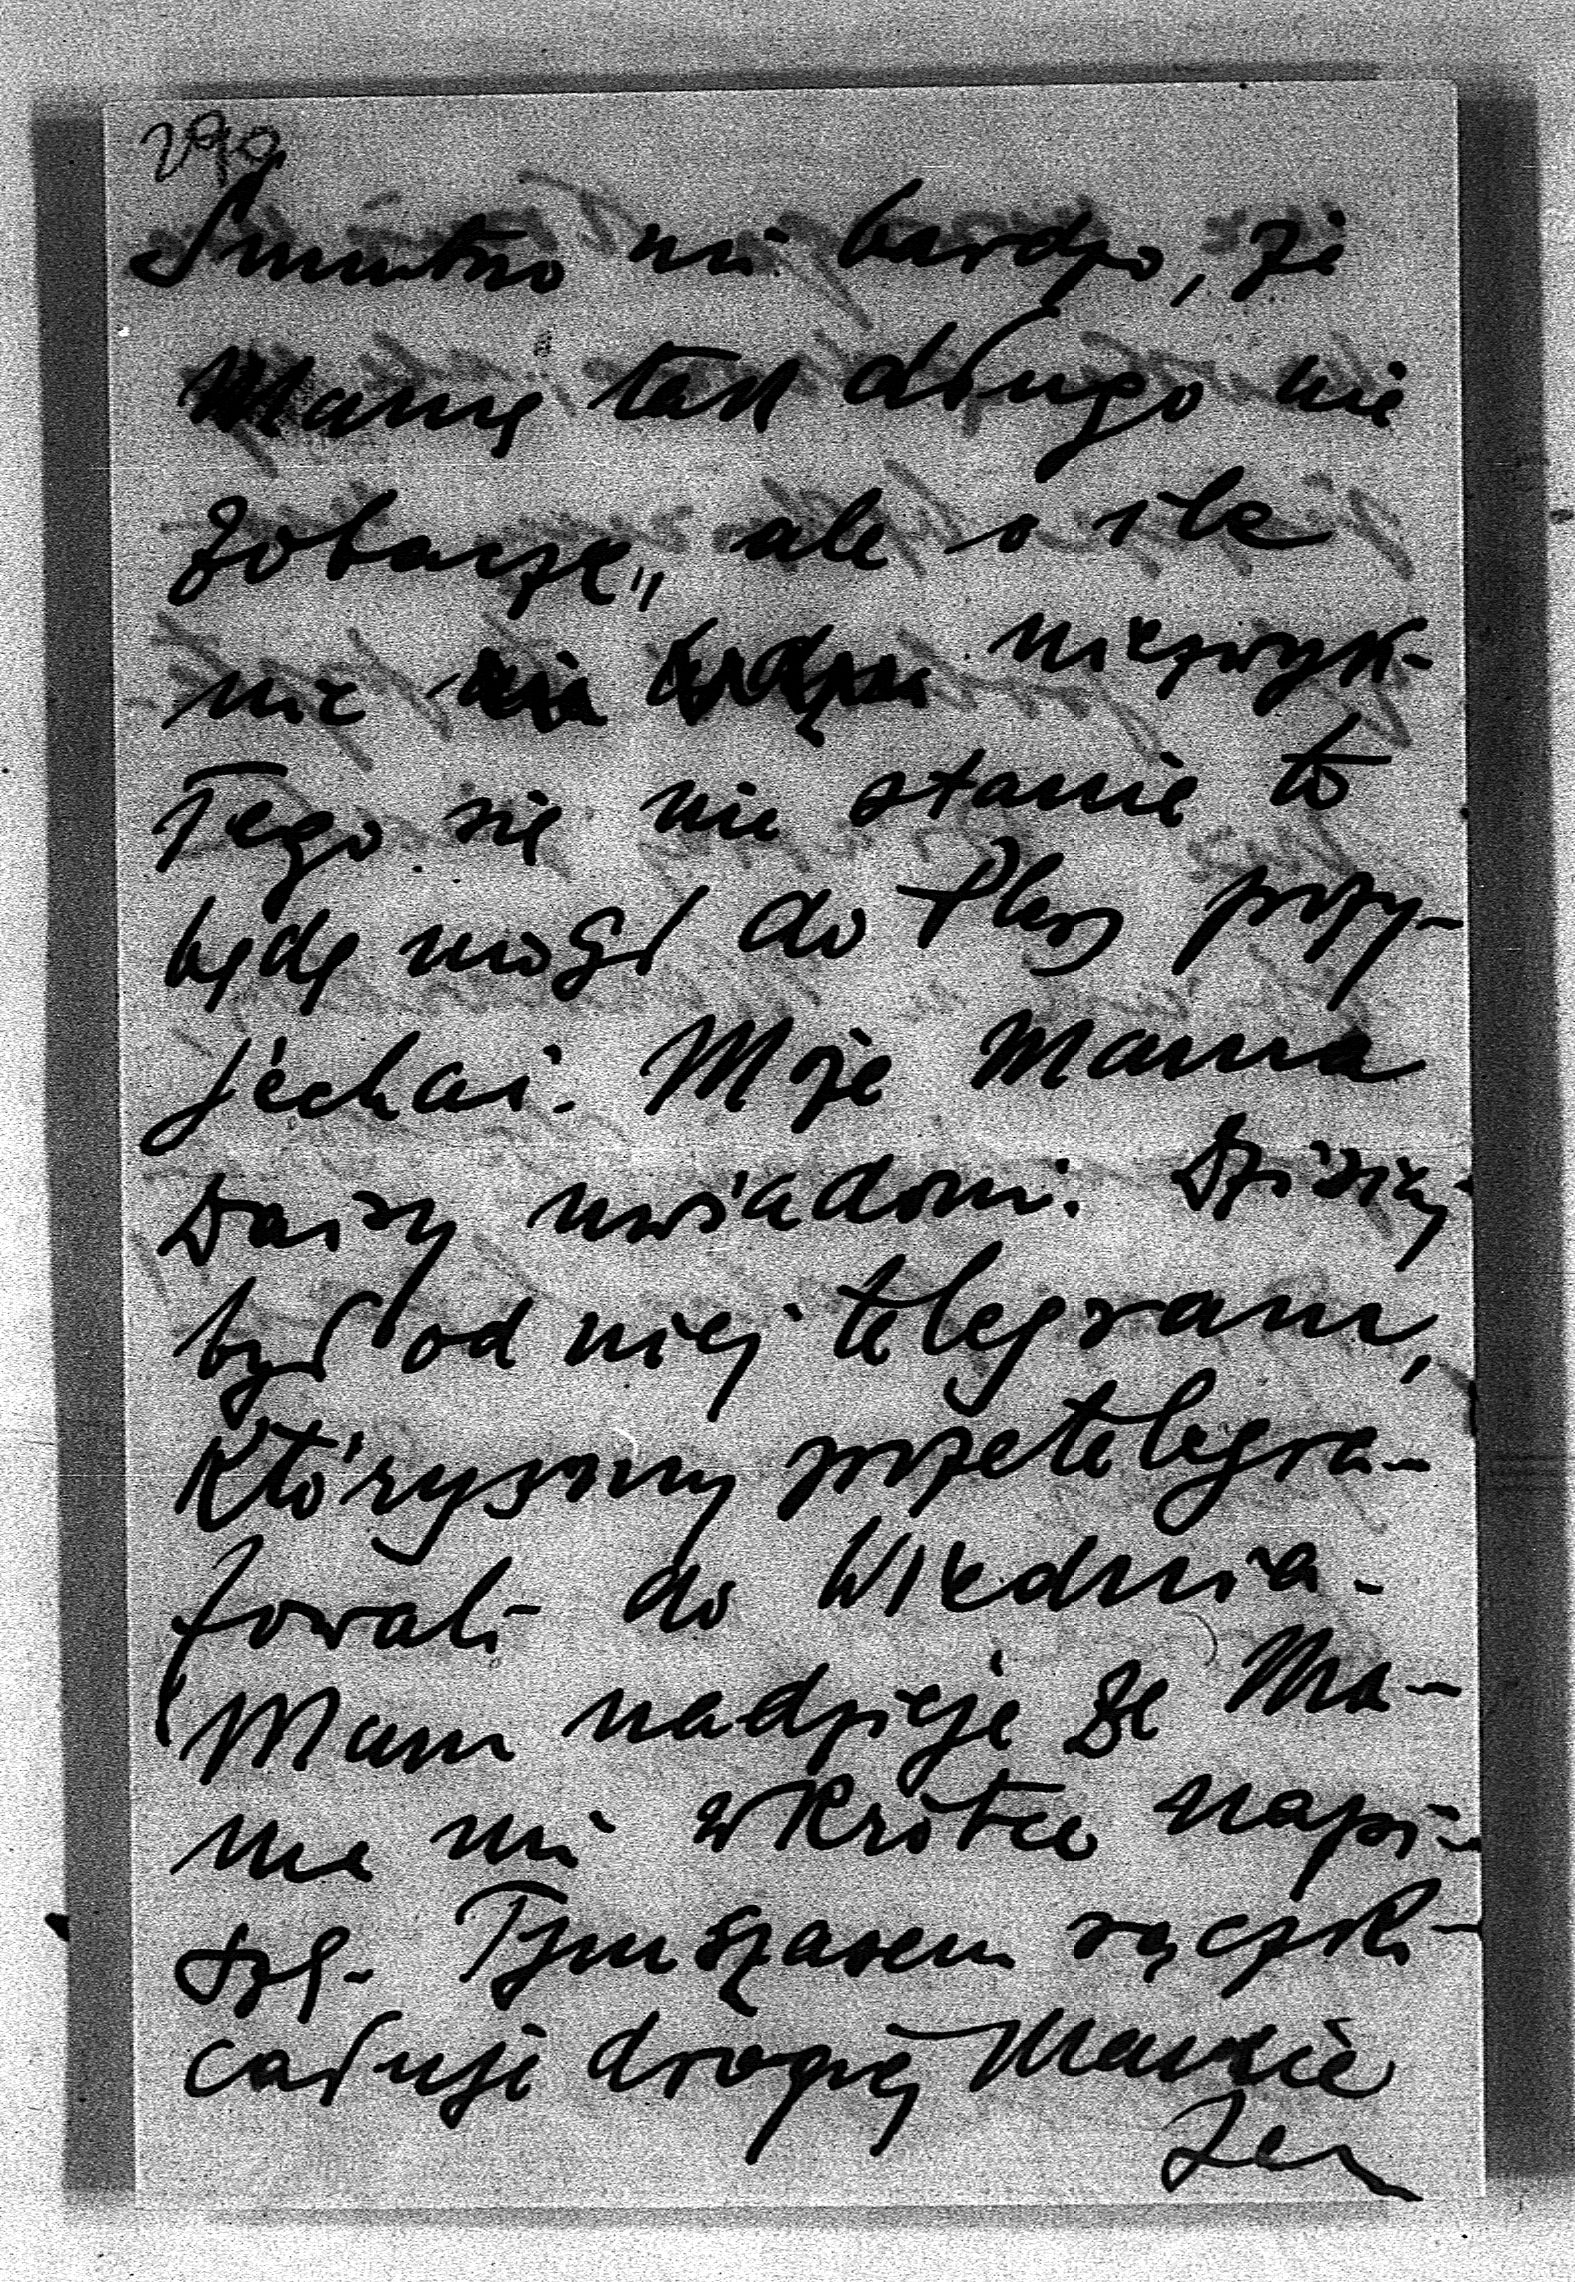 Smutno mi bardzo, że
Mamę tak długo nie
zobaczę, ale o ile
nic niezwyk-
łego się nie stanie to
będę mógł do Pless przy-
jechać. Może Mama
Daisy uwiadomi. Dzisiaj
był od niej telegram,
któryśmy przetelegra-
fowali do Wiednia.
Mam nadzieję że Ma-
ma mi wkrótce napi-
sze. Tymczasem rączki
całuję drogiej Mamie